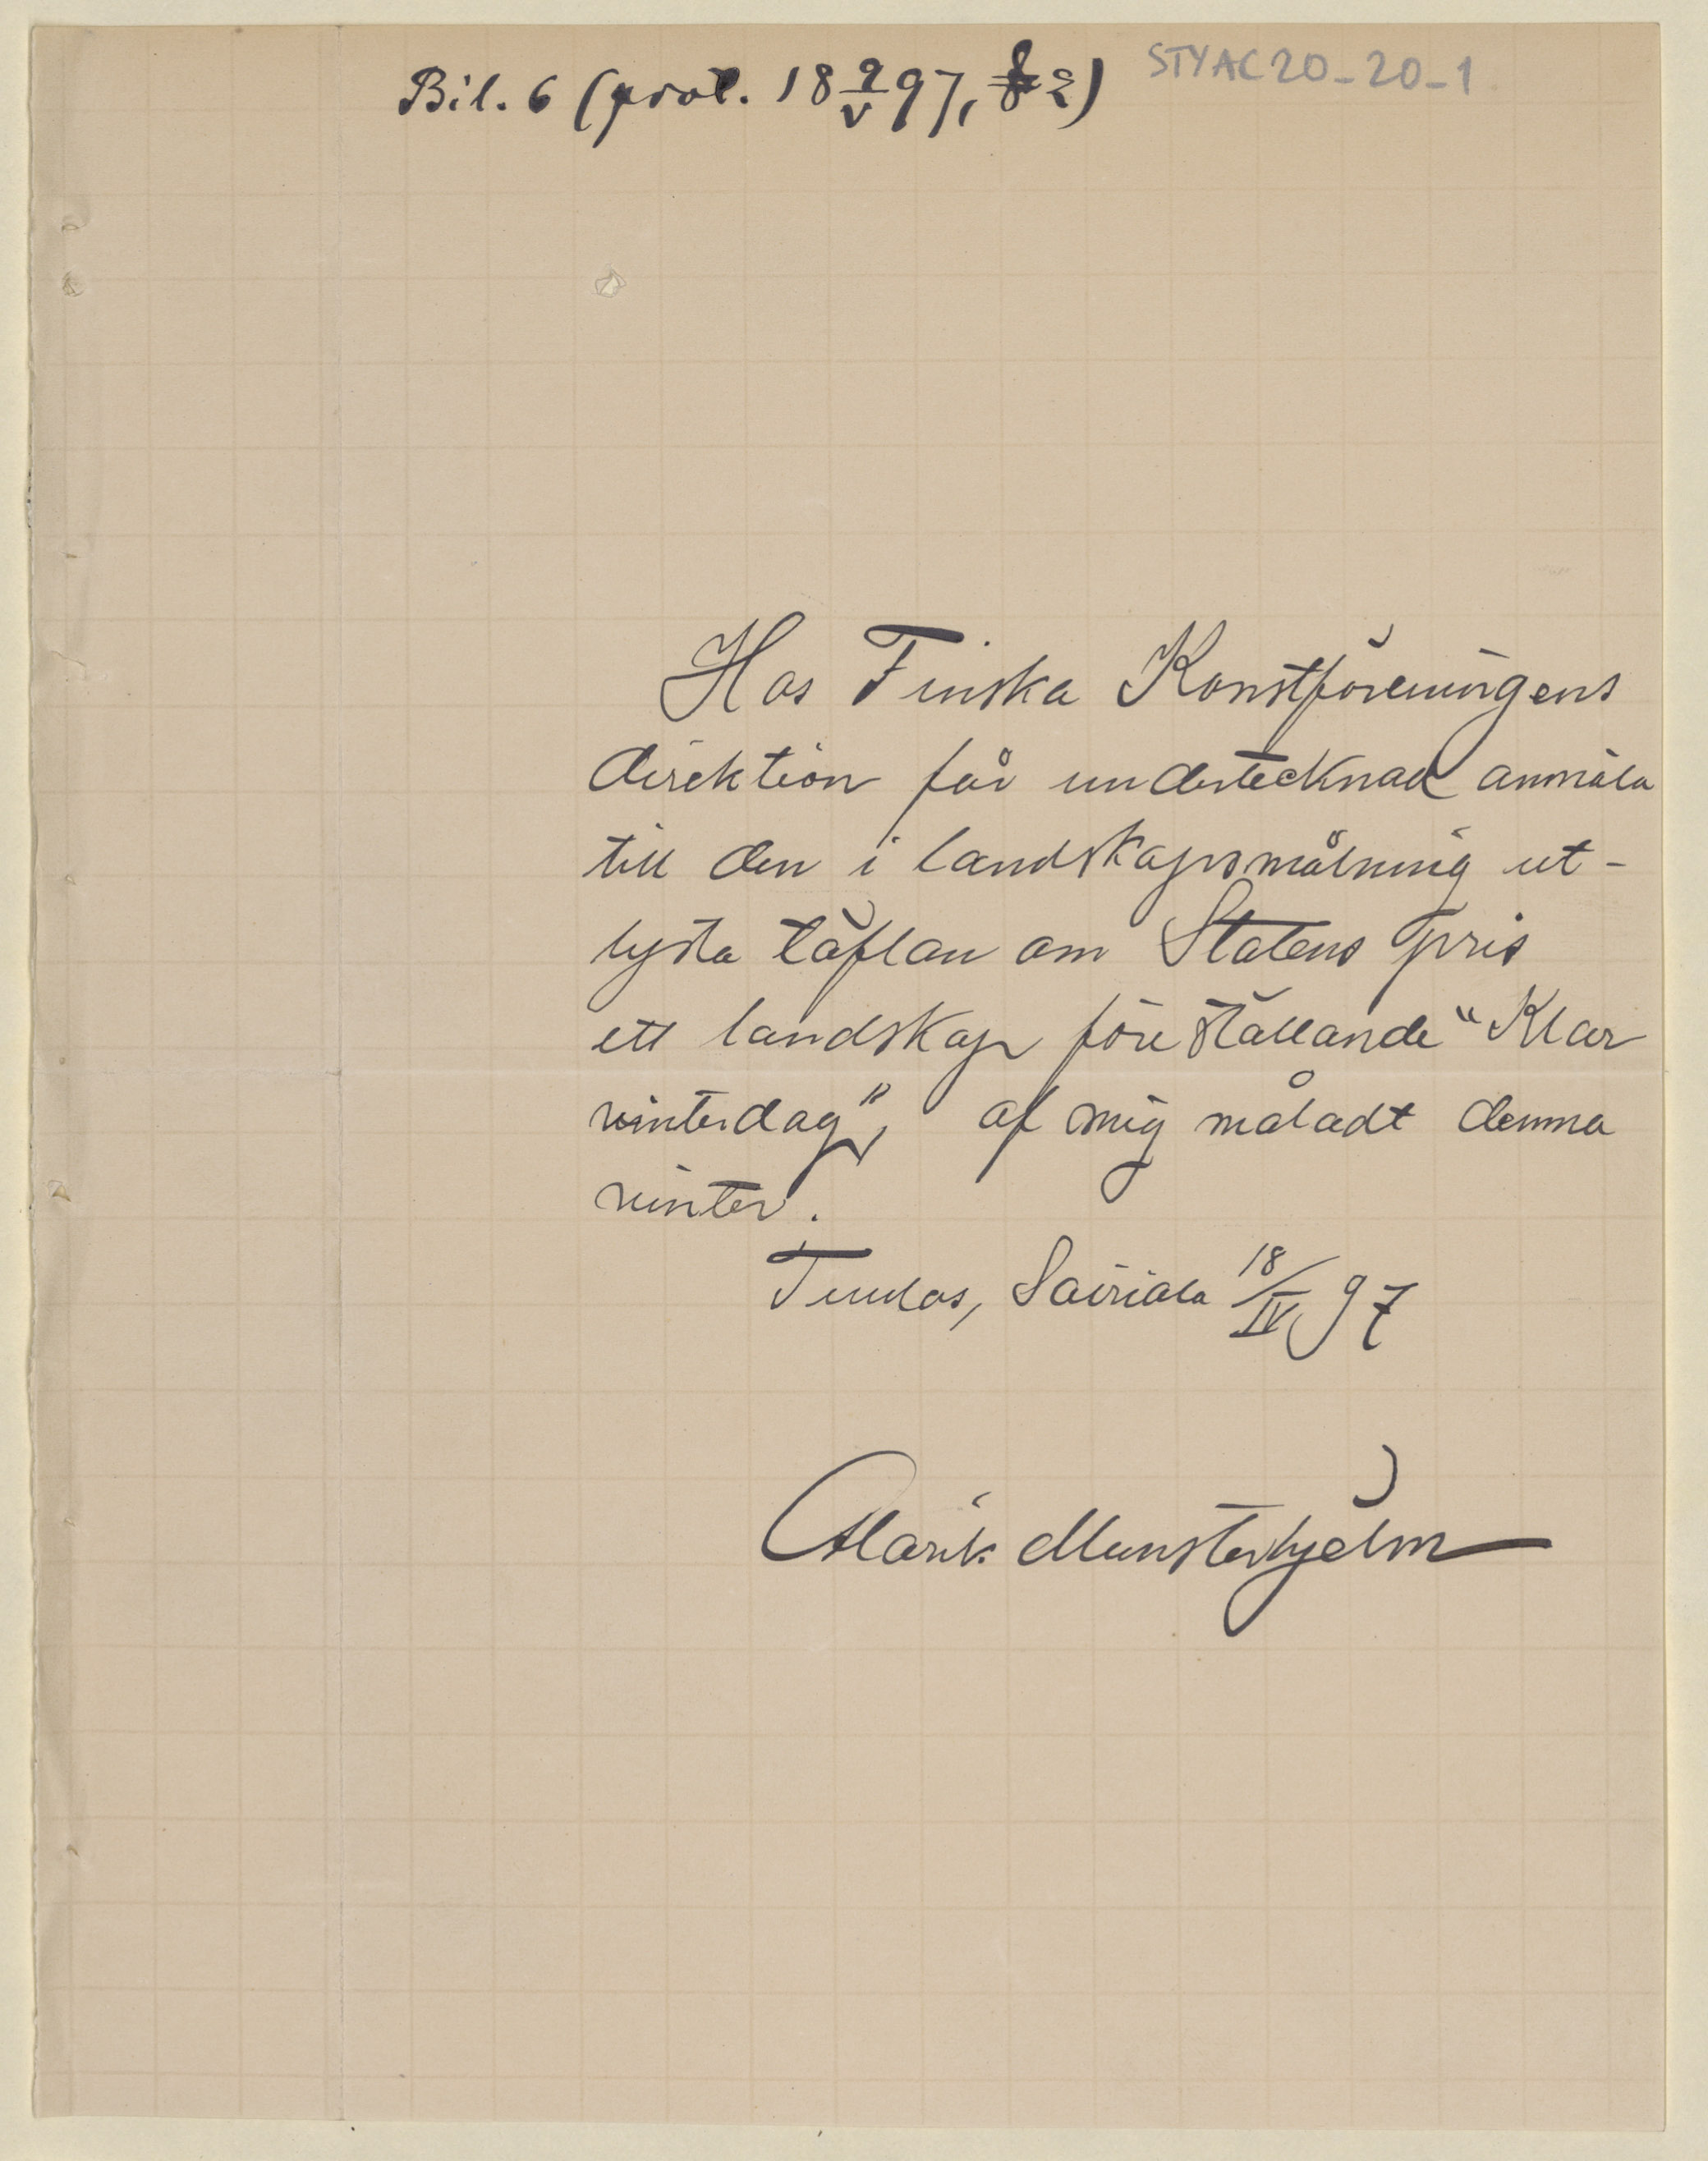 Bil. 6 (prot. 18 9/V 97, § 2)
STYAC20_20_1
Hos Finska Konstföreningens
direktion får undertecknad anmäla
till den i landskapsmålning ut-
lysta täflan om Statens pris
ett landskap föreställande "Klar
vinterdag", af mig måladt denna
vinter.
Tuulos, Sairiala 18/IV 97
Alarik Munsterhjelm